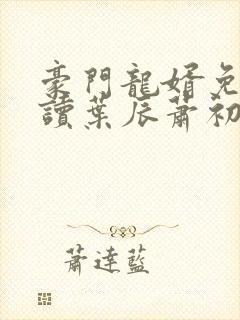 豪門龍婿免
讀葉辰蕭初
蕭達藍